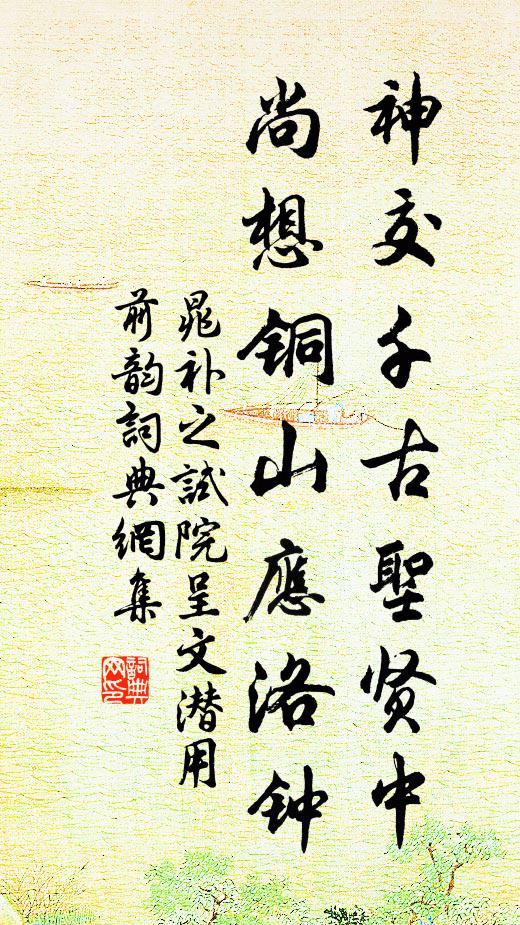 神交千古聖贤中
尚想铜山應洛钟
晁补之試院呈文潜用
前韵詞典網集
詞典
网印